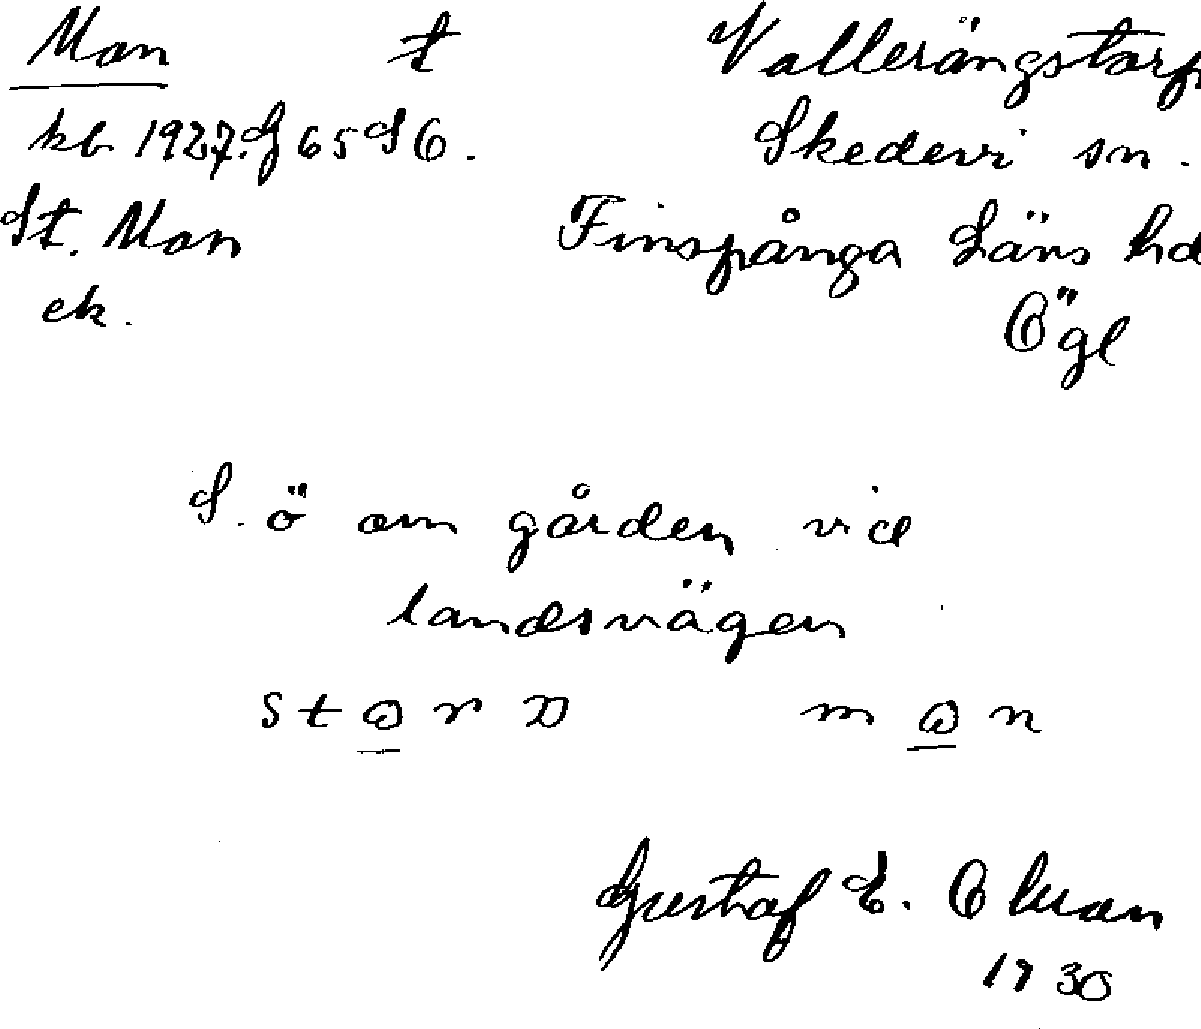 Mon t Vallerängstorp
kb 1927. G 65 S 6. Skedevi sn.
St. Mon Finspånga Läns hd
ek. Ögl
S. ö om gården vid
landsvägen
Gustaf E. Olsson
1930